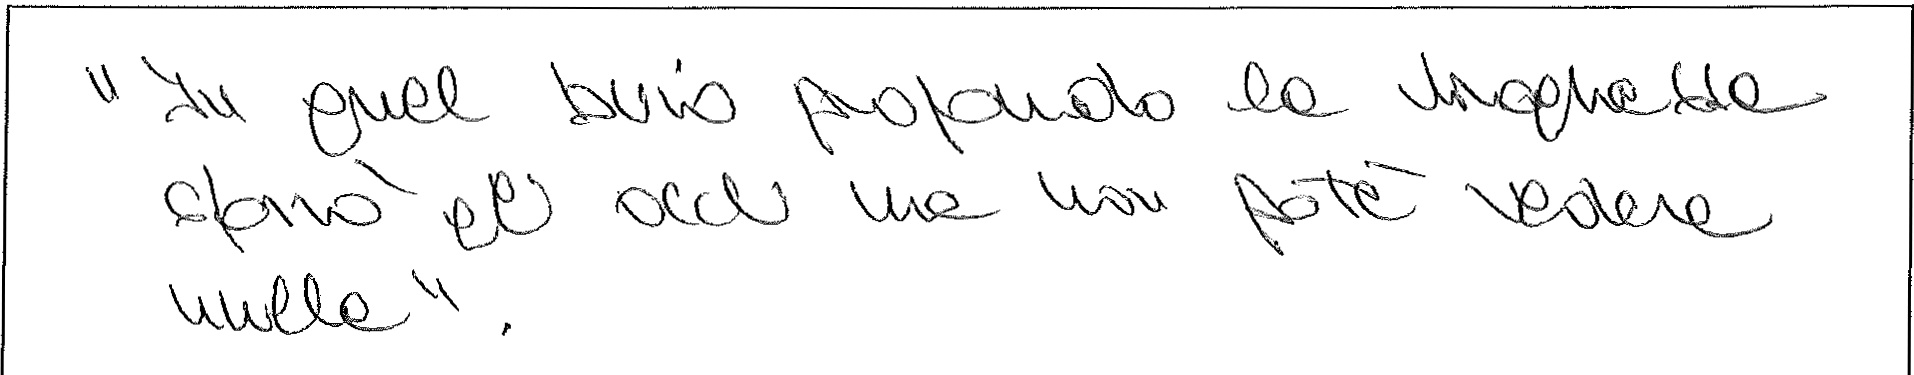 "In quel buio profondo la ragazza
sforzò gli occhi ma non poté vedere
nulla".